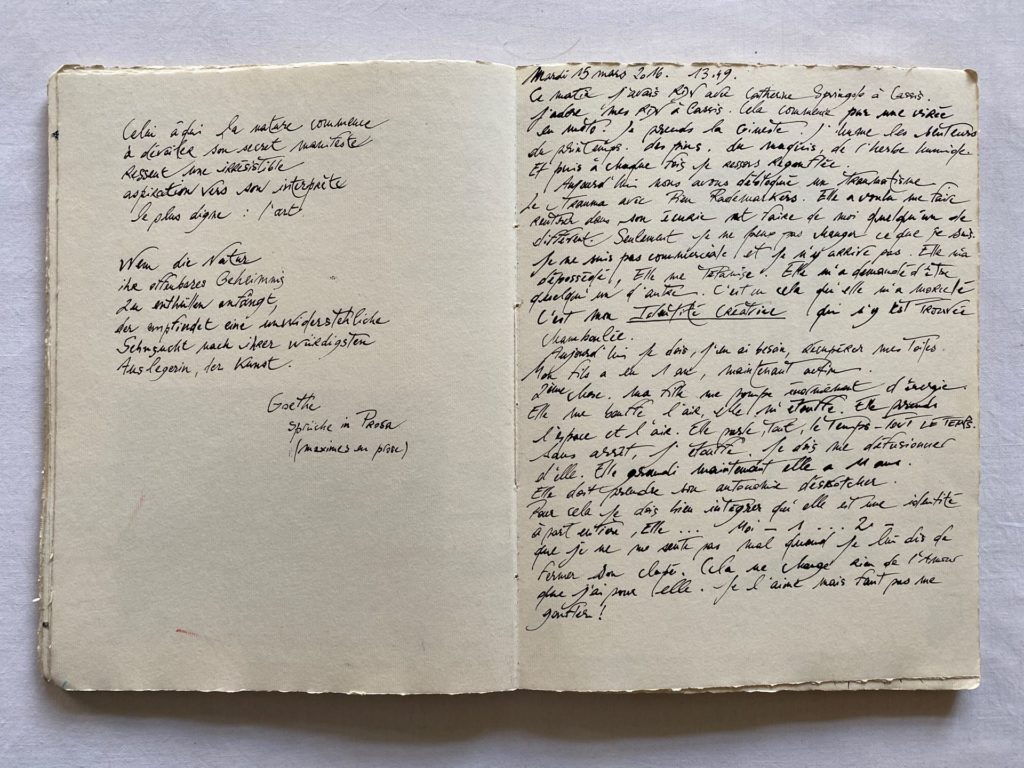 Celui à qui la nature commence
à dévoiler son secret manifeste
Ressent une irrésistible
aspiration vers son interprète
le plus digne : l'art
Wem die Natur
ihr offenbares Geheimnis
zu enthüllen anfängt,
der empfindet eine unwiderstehliche
Sehnsucht nach ihrer würdigsten
Auslegerin, der Kunst.
Goethe
Sprüche in Prosa
(maximes en prose)
Mardi 15 mars 2016. 13.49.
Ce matin j'avais RDV avec Catherine à Cassis.
J'adore mes RDV à Cassis. Cela commence par une virée
en moto? Je prends la Gineste? J'hume les senteurs
du printemps. des pins. du maquis, de l'herbe humide
Et puis à chaque fois je ressors
Aujourd'hui nous avons un traumatisme
le Trauma avec Rademarkers. Elle a voulu me faire
rentrer dans son écurie et faire de moi quelqu'un de
différent. Seulement je ne peux pas changer ce que je suis.
Je ne suis pas commerciale et je n'y arrive pas. Elle m'a
dépossédé, Elle me . Elle m'a demandé d'être
quelqu'un d'autre. C'est en cela qu'elle m'a morcelé
C'est mon Identité Créative qui s'y est trouvée
chamboulée.
Aujourd'hui je dois, j'en ai besoin, récupérer mes toiles.
Mon fils a eu 1 an, maintenant
2ème chose. ma fille me pompe énormément d'énergie
Elle me bouffe l'air, elle m'étouffe. Elle prends
l'espace et l'air. Elle parle, tait, le Temps - TOUT LE TEMPS.
Sans arrêt, j'étouffe. Je dois me défusionner
d'elle. Elle grandi maintenant elle a 11 ans.
Elle doit prendre son autonomie
Pour cela je dois bien intégrer qu'elle est une identité
à part entière, Elle ... Moi - 1 ... 2
que je ne me sente pas mal quand je lui dis de
fermer son clapet. Cela ne change rien de l'Amour
que j'ai pour elle. Je l'aime mais faut pas me
gonfler!